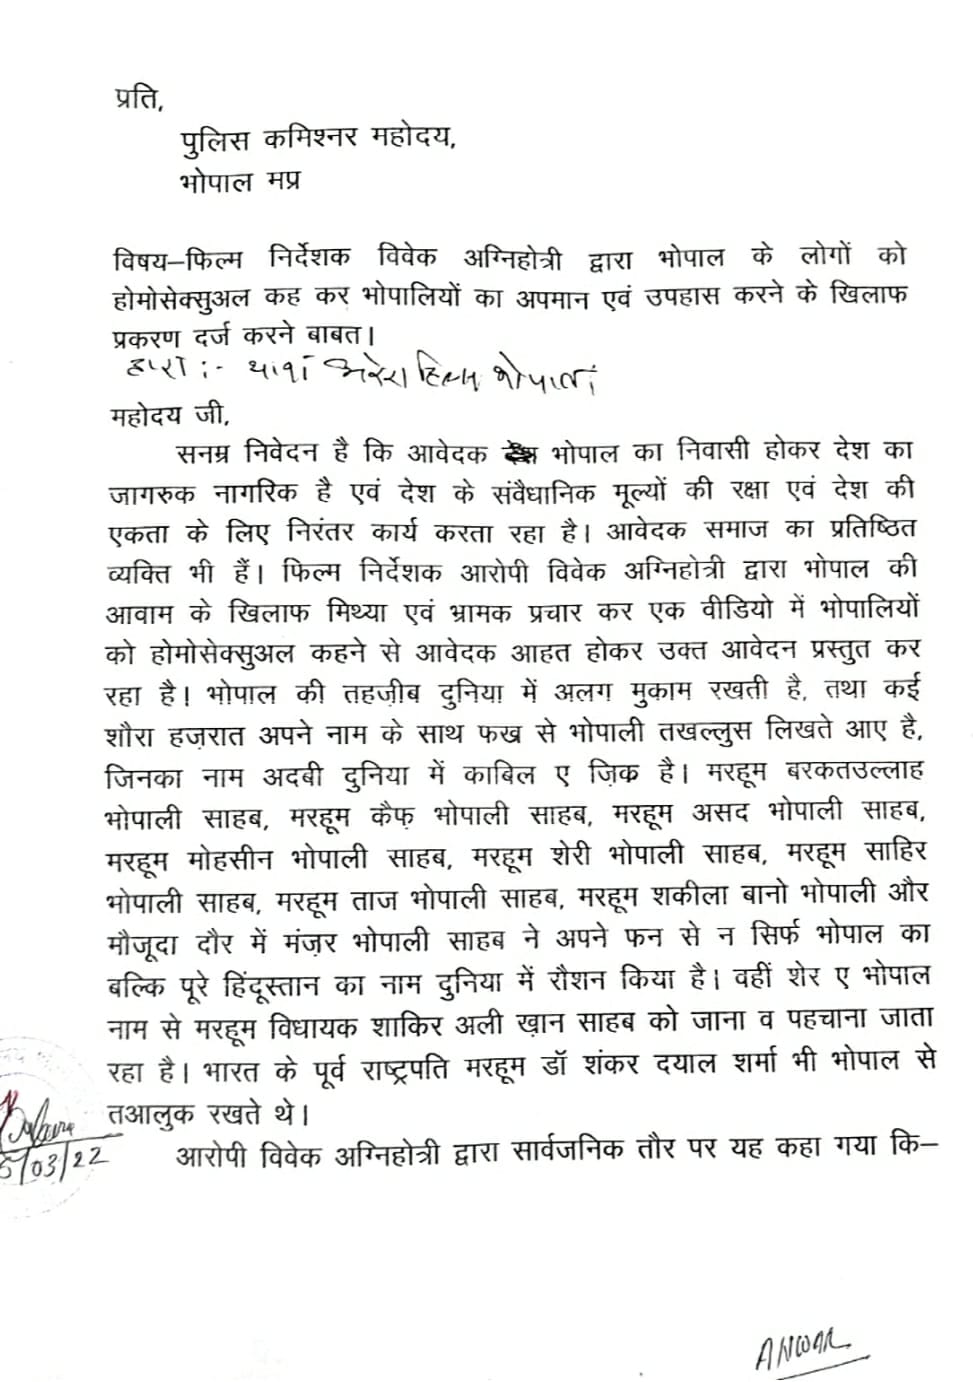 प्रति,
पुलिस कमिश्नर महोदय,
भोपाल मप्र
विषय–फिल्म निर्देशक विवेक अग्निहोत्री द्वारा भोपाल के लोगों को
होमोसेक्सुअल कह कर भोपालियों का अपमान एवं उपहास करने के खिलाफ
प्रकरण दर्ज करने बाबत।
द्वारा :- थाना अरेरा हिल्स भोपाल
महोदय जी,
सनम्र निवेदन है कि आवेदक भोपाल का निवासी होकर देश का
जागरुक नागरिक है एवं देश के संवैधानिक मूल्यों की रक्षा एवं देश की
एकता के लिए निरंतर कार्य करता रहा है। आवेदक समाज का प्रतिष्ठित
व्यक्ति भी हैं। फिल्म निर्देशक आरोपी विवेक अग्निहोत्री द्वारा भोपाल की
आवाम के खिलाफ मिथ्या एवं भ्रामक प्रचार कर एक वीडियो में भोपालियों
को होमोसेक्सुअल कहने से आवेदक आहत होकर उक्त आवेदन प्रस्तुत कर
रहा है। भोपाल की तहज़ीब दुनिया में अलग मुकाम रखती है, तथा कई
शौरा हज़रात अपने नाम के साथ फख्र से भोपाली तखल्लुस लिखते आए है,
जिनका नाम अदबी दुनिया में काबिल ए ज़िक्र है। मरहूम बरकतउल्लाह
भोपाली साहब, मरहूम कैफ़ भोपाली साहब, मरहूम असद भोपाली साहब,
मरहूम मोहसीन भोपाली साहब, मरहूम शेरी भोपाली साहब, मरहूम साहिर
भोपाली साहब, मरहूम ताज भोपाली साहब, मरहूम शकीला बानो भोपाली और
मौजूदा दौर में मंज़र भोपाली साहब ने अपने फन से न सिर्फ भोपाल का
बल्कि पूरे हिंदूस्तान का नाम दुनिया में रौशन किया है। वहीं शेर ए भोपाल
नाम से मरहूम विधायक शाकिर अली ख़ान साहब को जाना व पहचाना जाता
रहा है। भारत के पूर्व राष्ट्रपति मरहूम डॉ शंकर दयाल शर्मा भी भोपाल से
तआलुक रखते थे।
आरोपी विवेक अग्निहोत्री द्वारा सार्वजनिक तौर पर यह कहा गया कि–
5/03/22
ANWAR